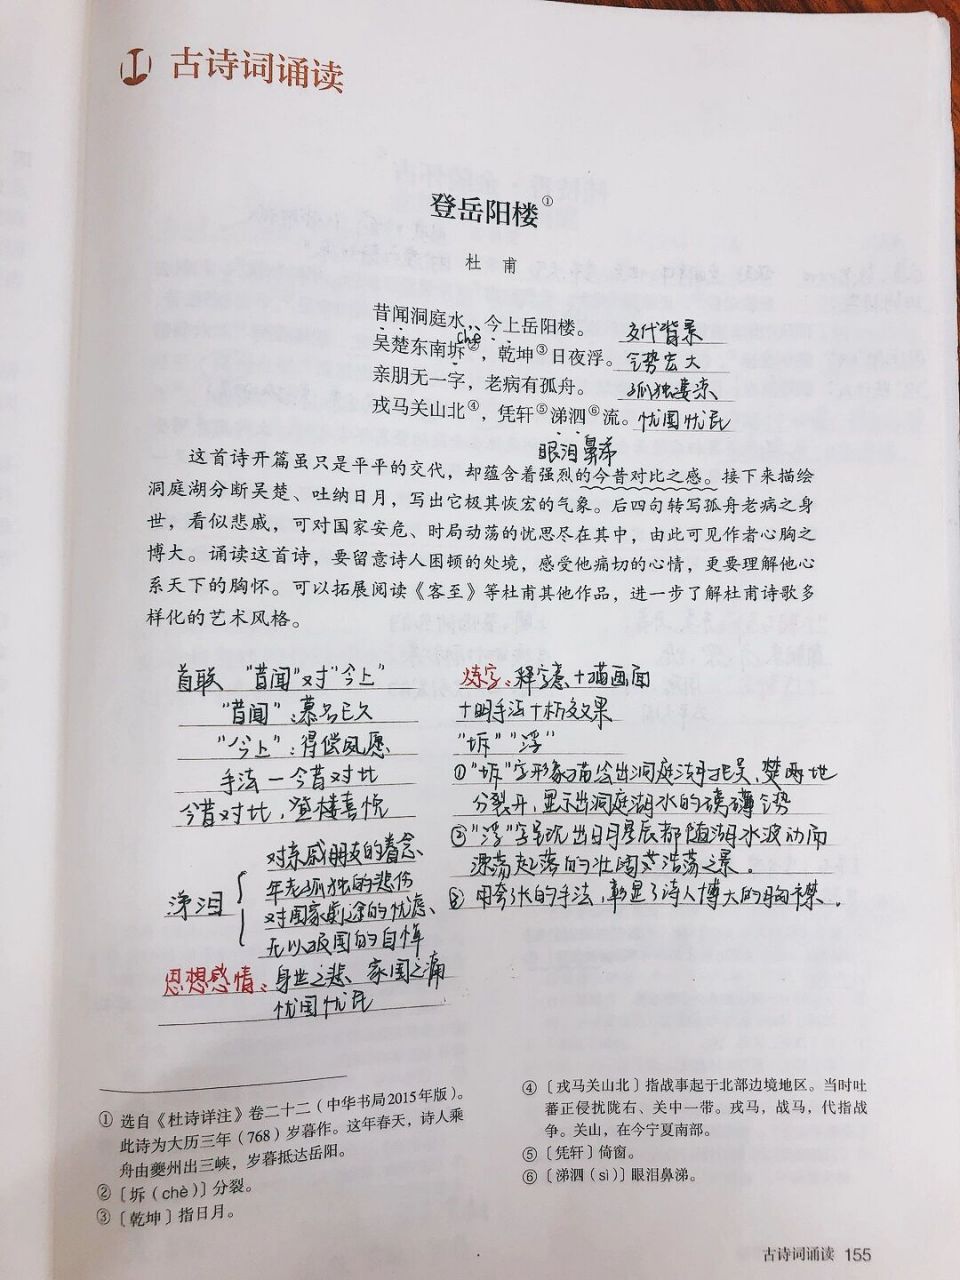 古诗词诵读
登岳阳楼①
杜 甫
昔闻洞庭水，今上岳阳楼。 交代背景
chè
吴楚东南坼②，乾坤③日夜浮。 气势宏大
亲朋无一字，老病有孤舟。 孤独凄凉
戎马关山北④，凭轩⑤涕泗⑥流。 忧国忧民
眼泪鼻涕
这首诗开篇虽只是平平的交代，却蕴含着强烈的今昔对比之感。接下来描绘
洞庭湖分断吴楚、吐纳日月，写出它极其恢宏的气象。后四句转写孤舟老病之身
世，看似悲戚，可对国家安危、时局动荡的忧思尽在其中，由此可见作者心胸之
博大。诵读这首诗，要留意诗人困顿的处境，感受他痛切的心情，更要理解他心
系天下的胸怀。可以拓展阅读《客至》等杜甫其他作品，进一步了解杜甫诗歌多
样化的艺术风格。
首联 "昔闻"对"今上"
"昔闻"：慕名已久
"今上"：得偿夙愿
手法一今昔对比
今昔对比，登楼喜悦
涕泪
对亲戚朋友的眷念
年老孤独的悲伤
对国家前途的忧虑、
无以报国的自悼
思想感情：身世之悲、家国之痛
忧国忧民
炼字：释字意+描画面
+明手法+析效果
"坼" "浮"
①"坼"字形象描绘出洞庭湖把吴、楚两地
分裂开，显示出洞庭湖水的磅礴气势
②"浮"字呈现出日月星辰都随湖水波动而
漂荡起落的壮阔浩荡之景。
③ 用夸张的手法，彰显了诗人博大的胸襟．
① 选自《杜诗详注》卷二十二（中华书局2015年版）。
此诗为大历三年（768）岁暮作。这年春天，诗人乘
舟由夔州出三峡，岁暮抵达岳阳。
② 〔坼（chè）〕分裂。
③ 〔乾坤〕指日月。
④ 〔戎马关山北〕指战事起于北部边境地区。当时吐
蕃正侵扰陇右、关中一带。戎马，战马，代指战
争。关山，在今宁夏南部。
⑤ 〔凭轩〕倚窗。
⑥ 〔涕泗（sì）〕眼泪鼻涕。
古诗词诵读 155